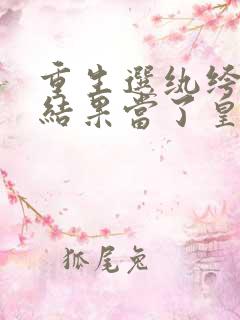 重生選紈绔
結果當了皇
狐尾兔